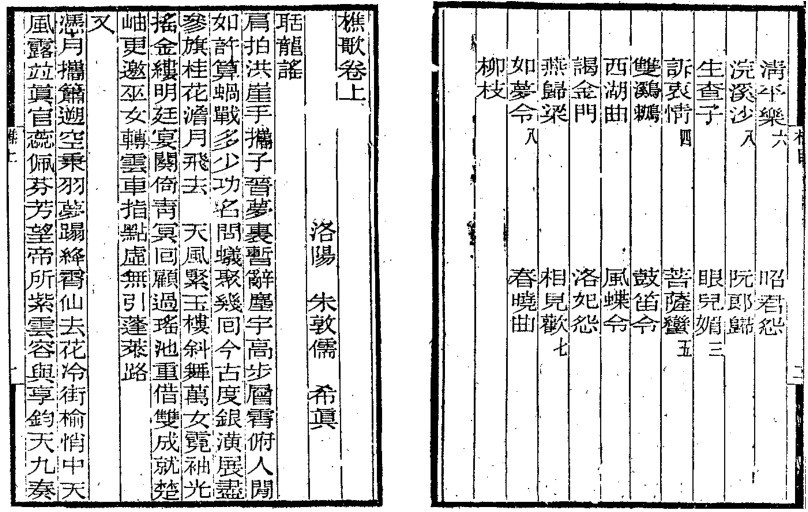 清平樂六 昭君怨
浣溪沙八 阮郎歸
生查子 眼兒媚三
訴衷情四 菩薩蠻五
雙鸂鶒 鼓笛令
西湖曲 風蝶令
謁金門 洛妃怨
燕歸梁 相見歡七
如夢令八 春曉曲
柳枝
樵歌卷上
洛陽 朱敦儒 希眞
聒龍謠
肩拍洪崖手攜子晉夢裏暫辭塵宇高步層霄俯人閒
如許算蝸戰多少功名問蟻聚幾回今古度銀潢展盡
參旗桂花澹月飛去 天風緊玉樓斜舞萬女霓袖光
搖金縷明廷宴闋倚靑冥回顧過瑤池重借雙成就楚
岫更邀巫女轉雲車指點虛無引蓬萊路
又
憑月攜簫遡空乘羽夢蹋絳霄仙去花冷街榆悄中天
風露並眞官蕊佩芬芳望帝所紫雲容與享鈞天九奏